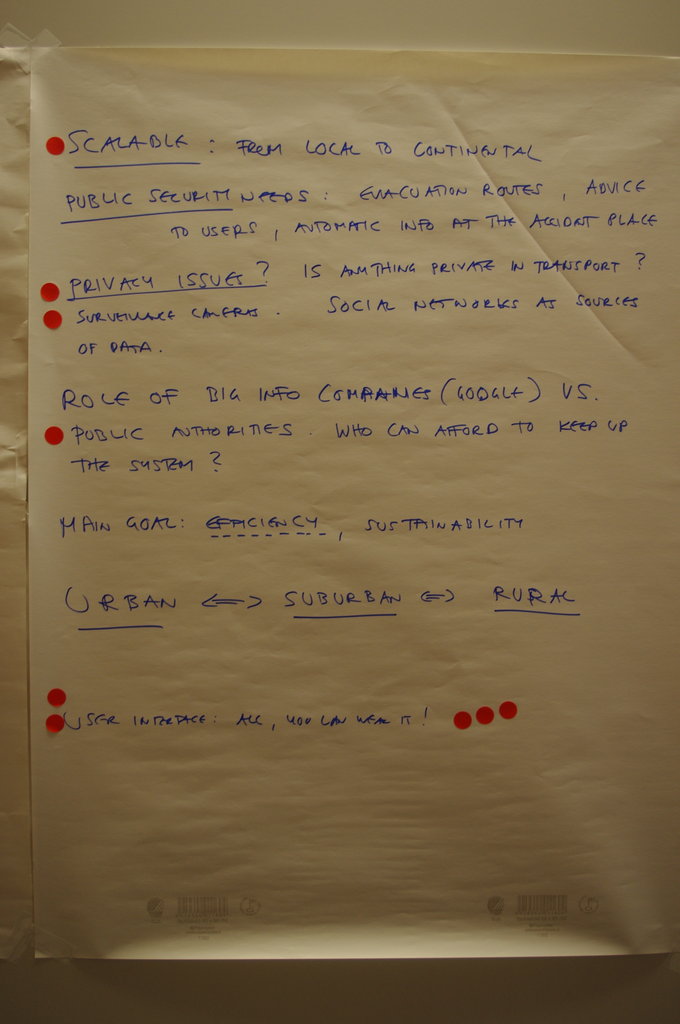 SCALABLE : FROM LOCAL TO CONTINENTAL
PUBLIC SECURITY NEEDS : EVACUATION ROUTES , ADVICE
TO USERS , AUTOMATIC INFO AT THE ACCIDENT PLACE
PRIVACY ISSUES ? IS ANYTHING PRIVATE IN TRANSPORT ?
SURVEILLANCE CAMERAS . SOCIAL NETWORKS AS SOURCES
OF DATA .
ROLE OF BIG INFO COMPANIES (GOOGLE) VS.
PUBLIC AUTHORITIES . WHO CAN AFFORD TO KEEP UP
THE SYSTEM ?
MAIN GOAL : EFFICIENCY , SUSTAINABILITY
URBAN <=> SUBURBAN <=> RURAL
USER INTERFACE : ALL, YOU CAN WEAR IT !